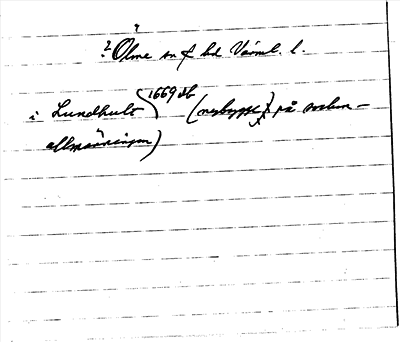 ? Ölme sn f hd Värml. l.
i Lundhult 1669 db (nybygge) på socken-
allmänningen)